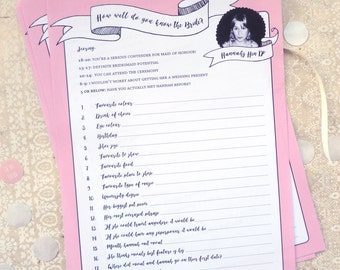 How well do you know the Bride?
Hannah's Hen Do
Scoring
18-20: YOU'RE A SERIOUS CONTENDER FOR MAID OF HONOUR!
15-17: DEFINITE BRIDESMAID POTENTIAL
10-14: YOU CAN ATTEND THE CEREMONY
6-9: I WOULDN'T WORRY ABOUT GETTING HER A WEDDING PRESENT
5 OR BELOW: HAVE YOU ACTUALLY MET HANNAH BEFORE?
1 Favourite colour
2 Drink of choice
3 Eye colour
4 Birthday
5 Shoe size
6 Favourite tv show
7 Favourite food
8 Favourite place to shop
9 Favourite type of music
10 University degree
11 Her biggest pet peeve
12 Her most overused phrase
13 If she could travel anywhere it would be
14 If she could have any superpower it would be
15 Month hannah met
16 She thinks best feature is his
17 Where did and hannah go on their first date?